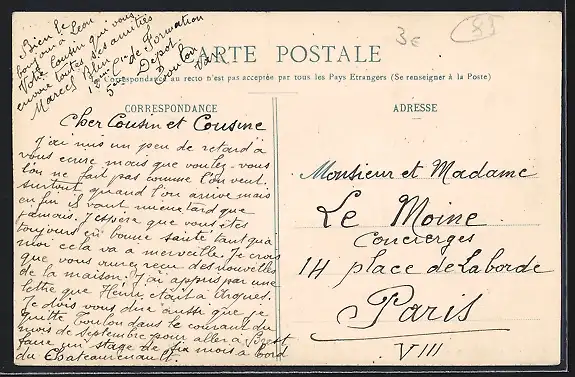 Bien le
bonjour à Léon
Votre cousin qui vous
envoie toutes ses amitiés
Marcel Blin
Cie de Formation
5me Dépôt
Toulon
Var
3€
85
CARTE POSTALE
Correspondance au recto n'est pas acceptée par tous les Pays Etrangers (Se renseigner à la Poste)
CORRESPONDANCE
ADRESSE
Cher Cousin et Cousine
J'ai mis un peu de retard à
vous écrire mais que voulez-vous
l'on ne fait pas comme l'on veut.
surtout quand l'on arrive mais
enfin il vaut mieux tard que
jamais. J'espère que vous êtes
toujours en bonne santé tant qu'à
moi cela va à merveille. Je crois
que vous avez reçu des nouvelles
de la maison. J'ai appris par une
lettre que Henri était à Arques.
Je dois vous dire aussi que je
quitte Toulon dans le courant du
mois de septembre pour aller à Brest
faire un stage de six mois à bord
du Chateaurenault.
Monsieur et Madame
Le Moine
Concierges
14 place de Laborde
Paris
VIII